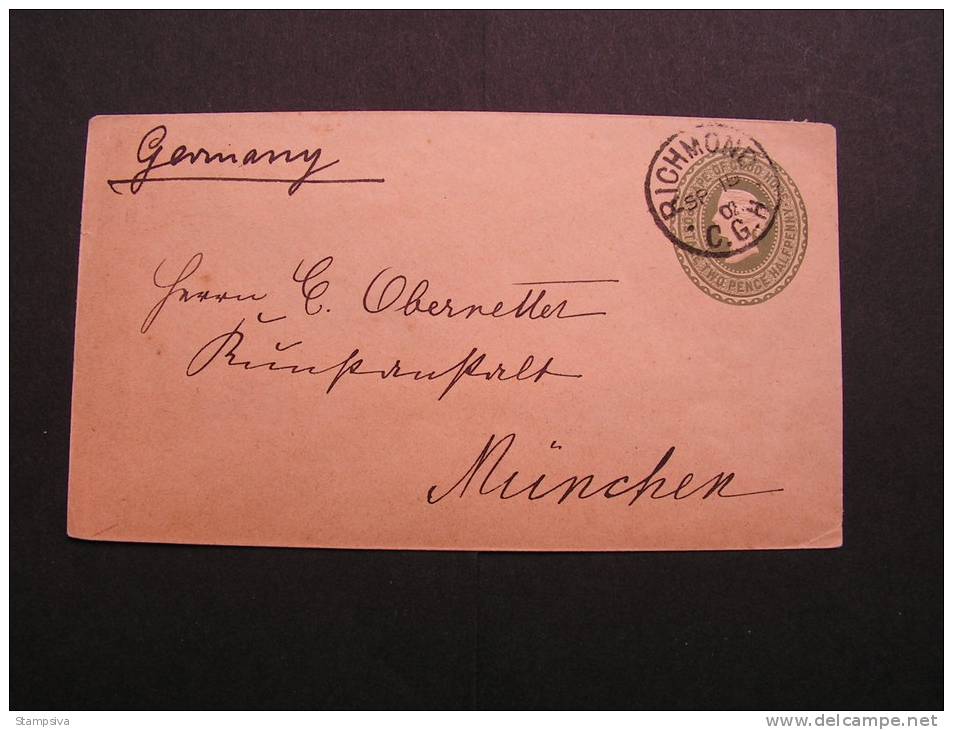 Germany
RICHMOND
SP 15
C.G.H
CAPE OF GOOD HOPE
POSTAGE TWO PENCE HALFPENNY
Herrn E. Obernetter
Kunstanstalt
München
Stampsiva
www.delcampe.net